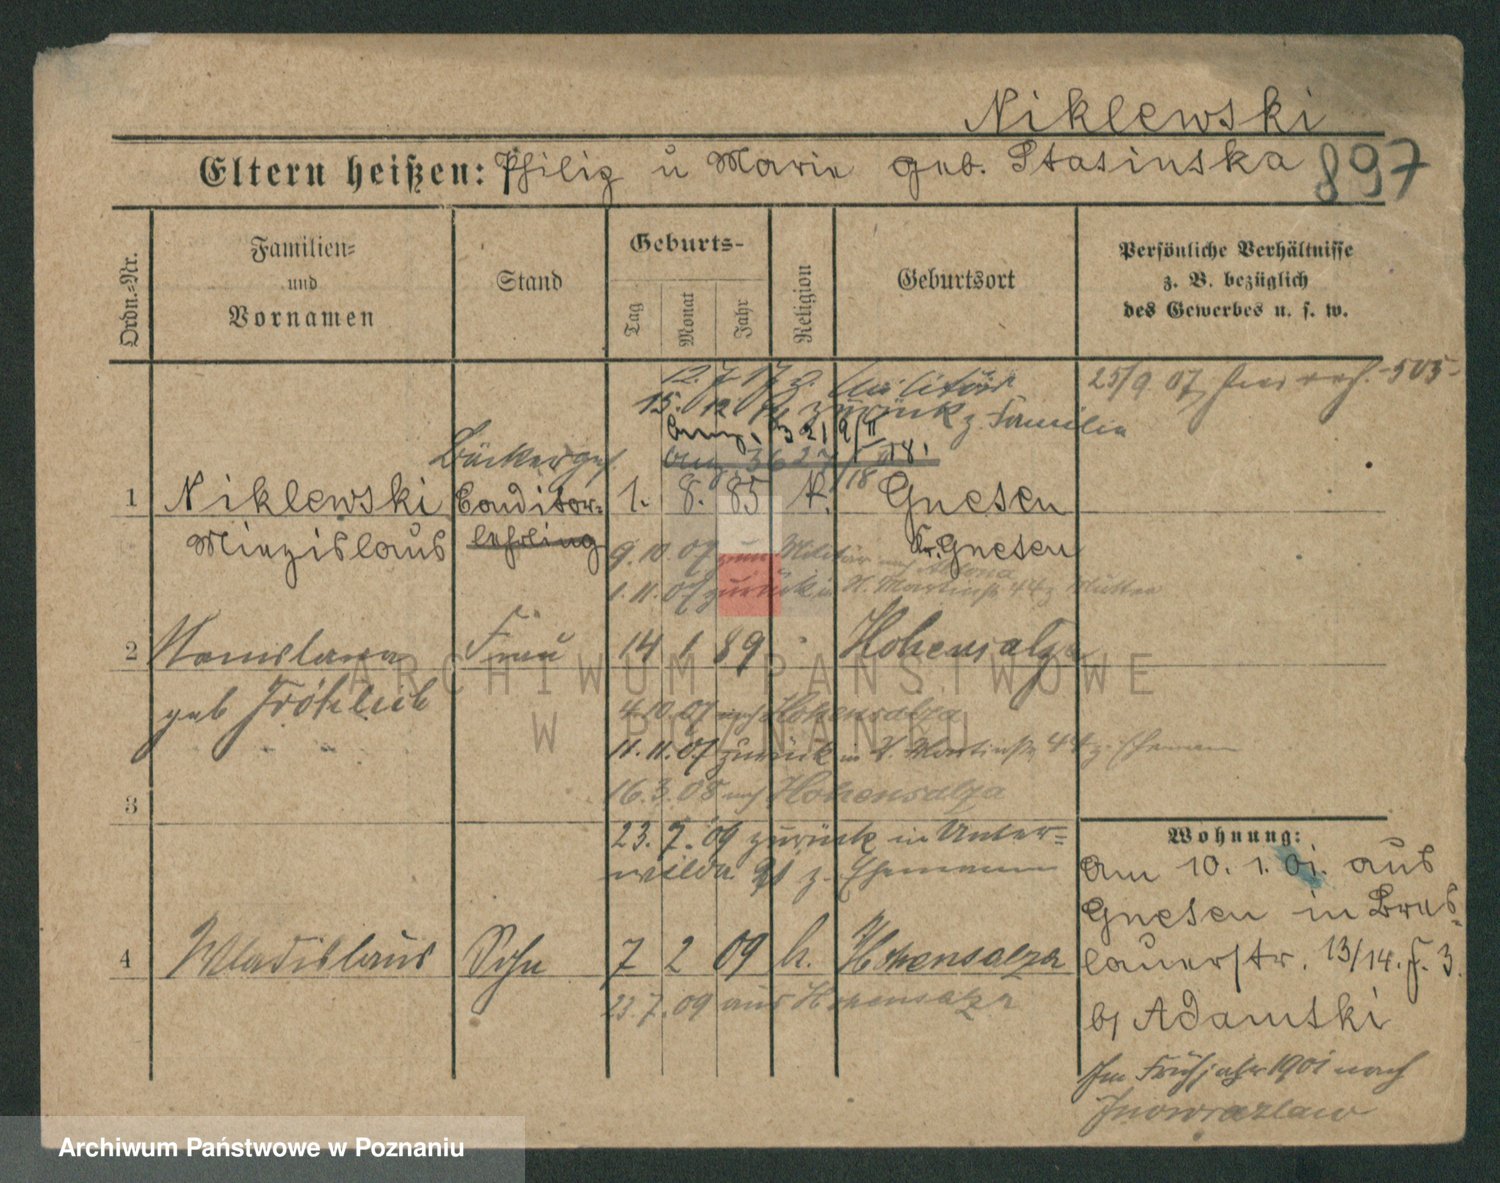 Niklewski
Eltern heißen: Philip u Marie geb. Stasinska 897
Ordn.-Nr.
Familien- und Vornamen
Stand
Geburts-
Tag Monat Jahr
Religion
Geburtsort
Persönliche Verhältnisse
z. B. bezüglich
des Gewerbes u. s. w.
12. 7. 17 z. Militär
25/9 07 505
15. 12. zurück z. Familie
Bäckerges.
1 Niklewski Conditor- 1. 8. 85 k. Gnesen
Miezislaus lehrling Kr. Gnesen
9.10.07 zum Militär nach Altona
1.11.07 zurück in St. Martinstr 44 z Mutter
2 Stanislawa Frau 14 1 89 Hohensalza
geb Fröhlich
4.10.07 nach Hohensalza
11.11.07 zurück in St. Martinstr 44 z. Ehemann
16.3.08 nach Hohensalza
3
23.7.09 zurück in Unter-
wilda z. Ehemann
4 Wladislaus Sohn 7 2 09 k. Hohensalza
23.7.09 aus Hohensalza
Wohnung:
Am 10. 1. 01. aus
Gnesen in Bres-
lauerstr. 13/14. F. 3.
b/ Adamski
Im Frühjahr 1901 nach
Inowrazlaw
ARCHIWUM PAŃSTWOWE
W POZNANIU
Archiwum Państwowe w Poznaniu